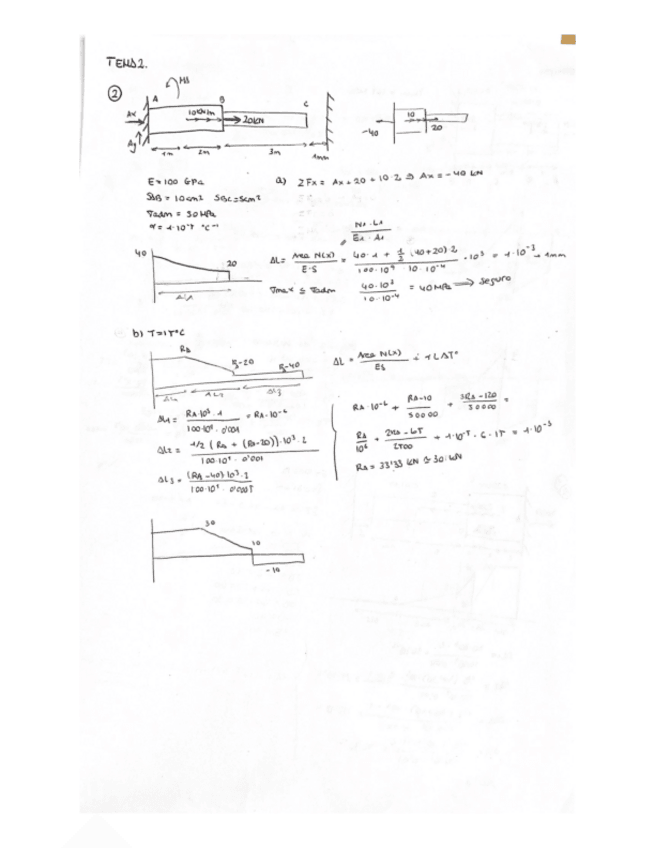 TEMA 2.
②
MA
A
B
C
Ax
Ay
10kN/m
20kN
1m
2m
3m
1mm
-40
10
20
E = 100 GPa
SAB = 10cm² SBC = 5cm²
σadm = 50 MPa
α = 1·10⁻⁵ °C⁻¹
a) ΣFx = Ax + 20 + 10·2 ⇒ Ax = -40 kN
40
20
ΔL = Area N(x) / E·S = 40·1 + 1/2 (40+20)·2 / 100·10⁹ · 10·10⁻⁴ · 10³ = 1·10⁻³ → 1mm
σmax ≤ σadm 40·10³ / 10·10⁻⁴ = 40MPa ⟹ seguro
b) T=15°C
RA
ΔL2
ΔL3
ΔL = Area N(x) / ES + αLΔT°
ΔL1 = RA·10³·1 / 100·10⁹·0'001 = RA·10⁻⁶
ΔL2 = 1/2 (RA + (RA-20))·10³·2 / 100·10⁹·0'001
ΔL3 = (RA-40)·10³·3 / 100·10⁹·0'0005
RA·10⁻⁶ + RA-10 / 50000 + 3RA-120 / 50000 =
RA = 33'33 kN ≃ 30 kN
30
10
-10